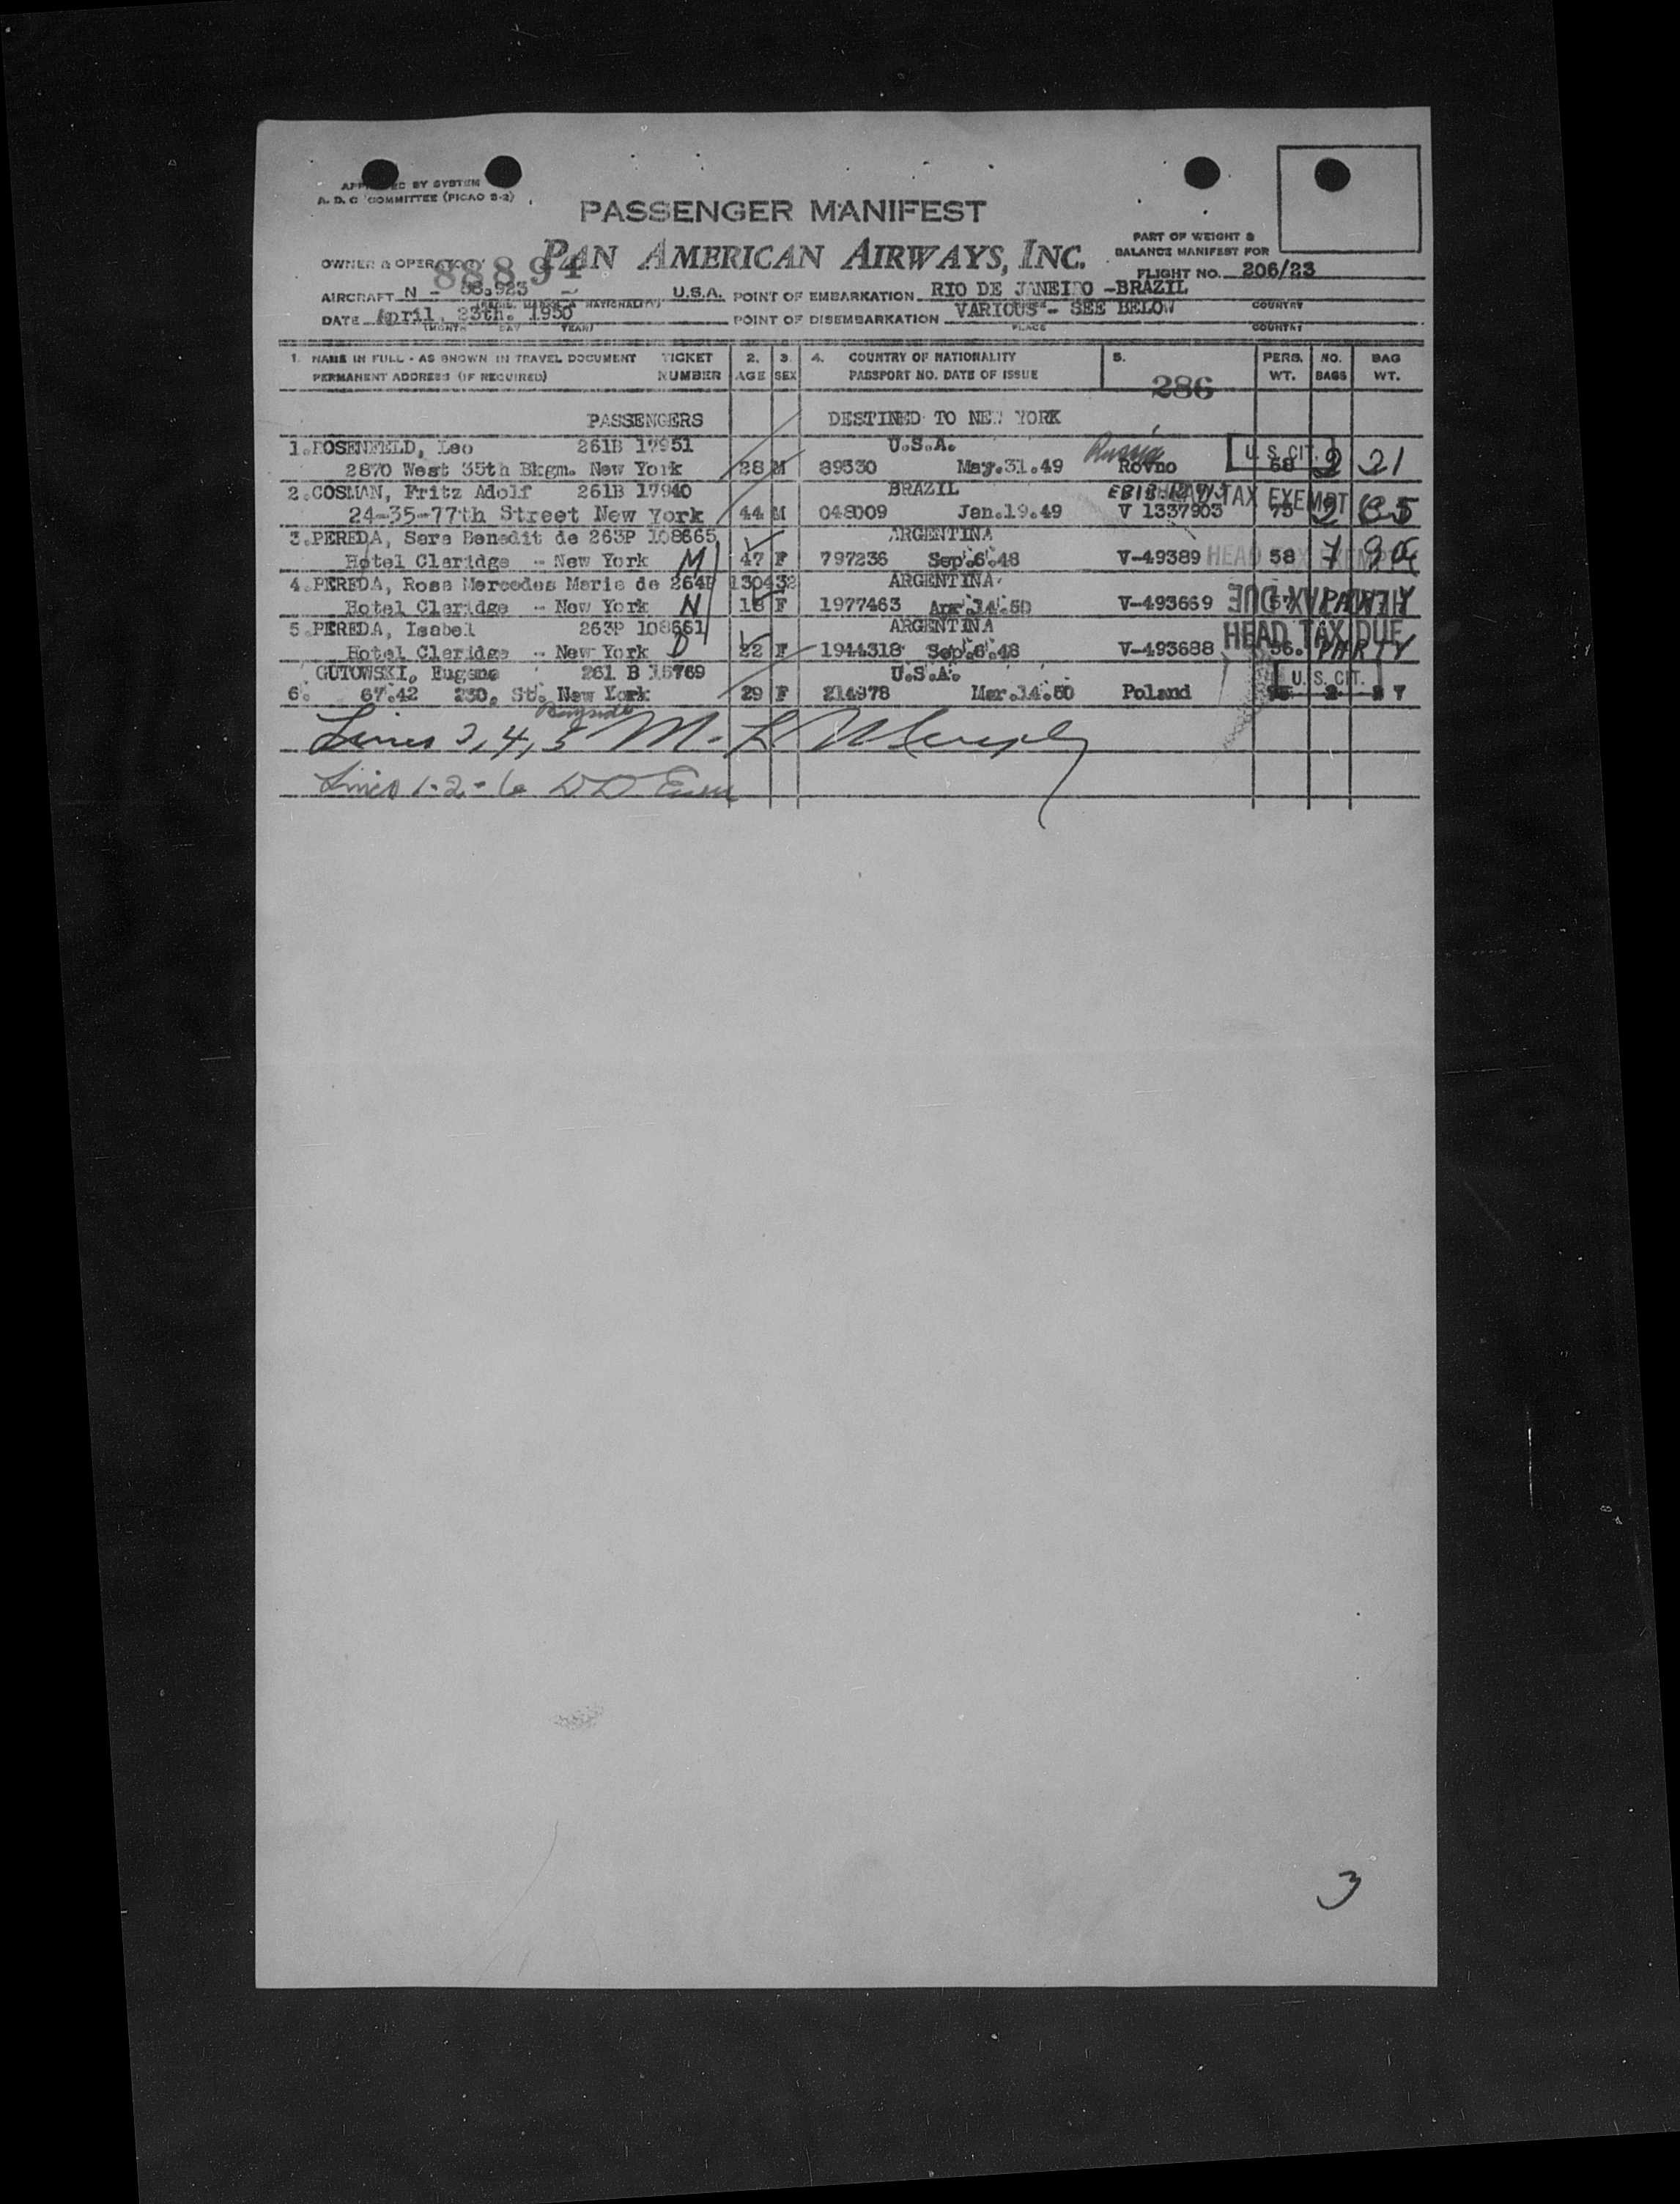 APPROVED BY SYSTEM
A. D. C COMMITTEE (PICAO S-2)
PASSENGER MANIFEST
PAN AMERICAN AIRWAYS, INC.
PART OF WEIGHT &
BALANCE MANIFEST FOR
FLIGHT NO. 206/23
OWNER & OPERATOR
88894
AIRCRAFT N - 88.923 - U.S.A. POINT OF EMBARKATION RIO DE JANEIRO -BRAZIL
DATE April, 23th. 1950 POINT OF DISEMBARKATION VARIOUS - SEE BELOW
(MONTH DAY YEAR) PLACE COUNTRY
1. NAME IN FULL - AS SHOWN IN TRAVEL DOCUMENT TICKET 2. 3. 4. COUNTRY OF NATIONALITY 5. PERS. NO. BAG
PERMANENT ADDRESS (IF REQUIRED) NUMBER AGE SEX PASSPORT NO. DATE OF ISSUE WT. BAGS WT.
286
PASSENGERS DESTINED TO NEW YORK
1.ROSENFELD, Leo 261B 17951 U.S.A. Russia U. S. CIT.
2870 West 35th Bkgm. New York 28 M 89530 May.31.49 Rovno 68 2 21
2.COSMAN, Fritz Adolf 261B 17940 BRAZIL HEAD TAX EXEMPT
24-35-77th Street New York 44 M 048009 Jan.19.49 V 1337903 75 2
3.PEREDA, Sara Benedit de 263P 108665 ARGENTINA
Hotel Claridge - New York M 47 F 797236 Sep.6.48 V-49389 HEAD TAX EXEMPT 58 7
4.PEREDA, Rosa Mercedes Maria de 264P 130432 ARGENTINA
Hotel Claridge - New York N 18 F 1977463 Apr.14.50 V-493669 HEAD TAX DUE PARTY
5.PEREDA, Isabel 263P 108661 ARGENTINA HEAD TAX DUE
Hotel Claridge - New York D 22 F 1944318 Sep.6.48 V-493688 56. PARTY
GUTOWSKI, Eugene 261 B 15769 U.S.A. U. S. CIT.
6. 67.42 230, St. New York 29 F 214978 Mar.14.50 Poland 2
Bayside
Lines 3,4,5 M. L Murphy
Lines 1-2-6 D D
3